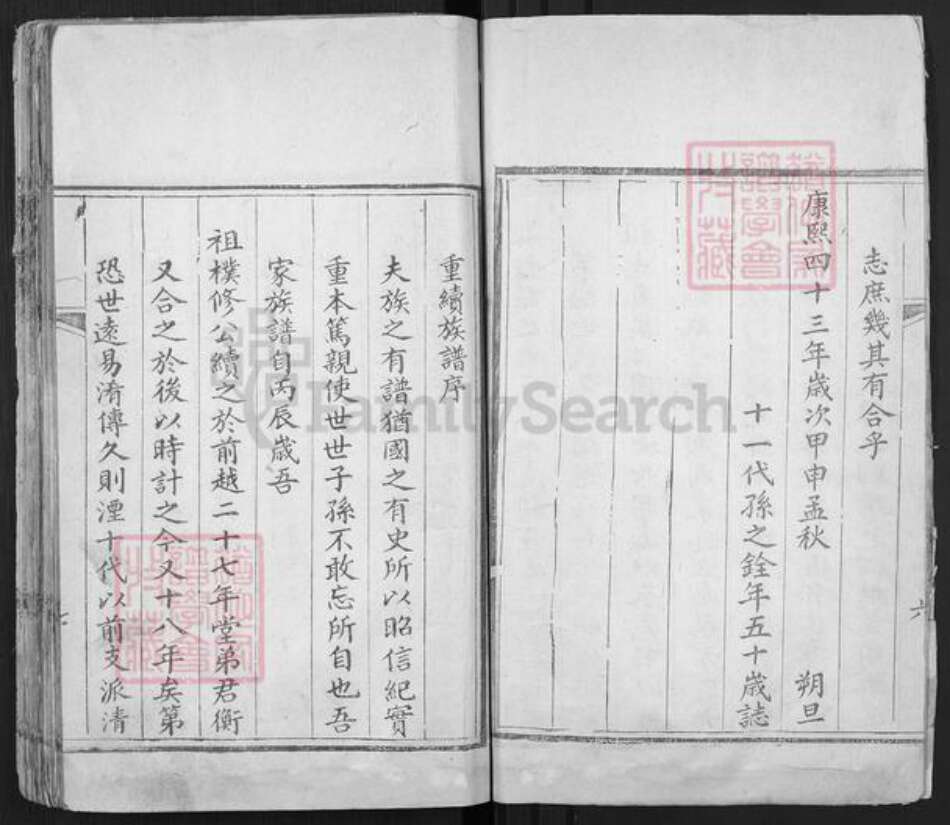 志庶幾其有合乎
康熙四十三年歲次甲申孟秋 朔旦
十一代孫之銓年五十歲誌
六
重續族譜序
夫族之有譜猶國之有史所以昭信紀實
重本篤親使世世子孫不敢忘所自也吾
家族譜自丙辰歲吾
祖樸修公續之於前越二十七年堂弟君衡
又合之於後以時計之今又十八年矣第
恐世遠易淆傳久則湮十代以前支派清
FamilySearch